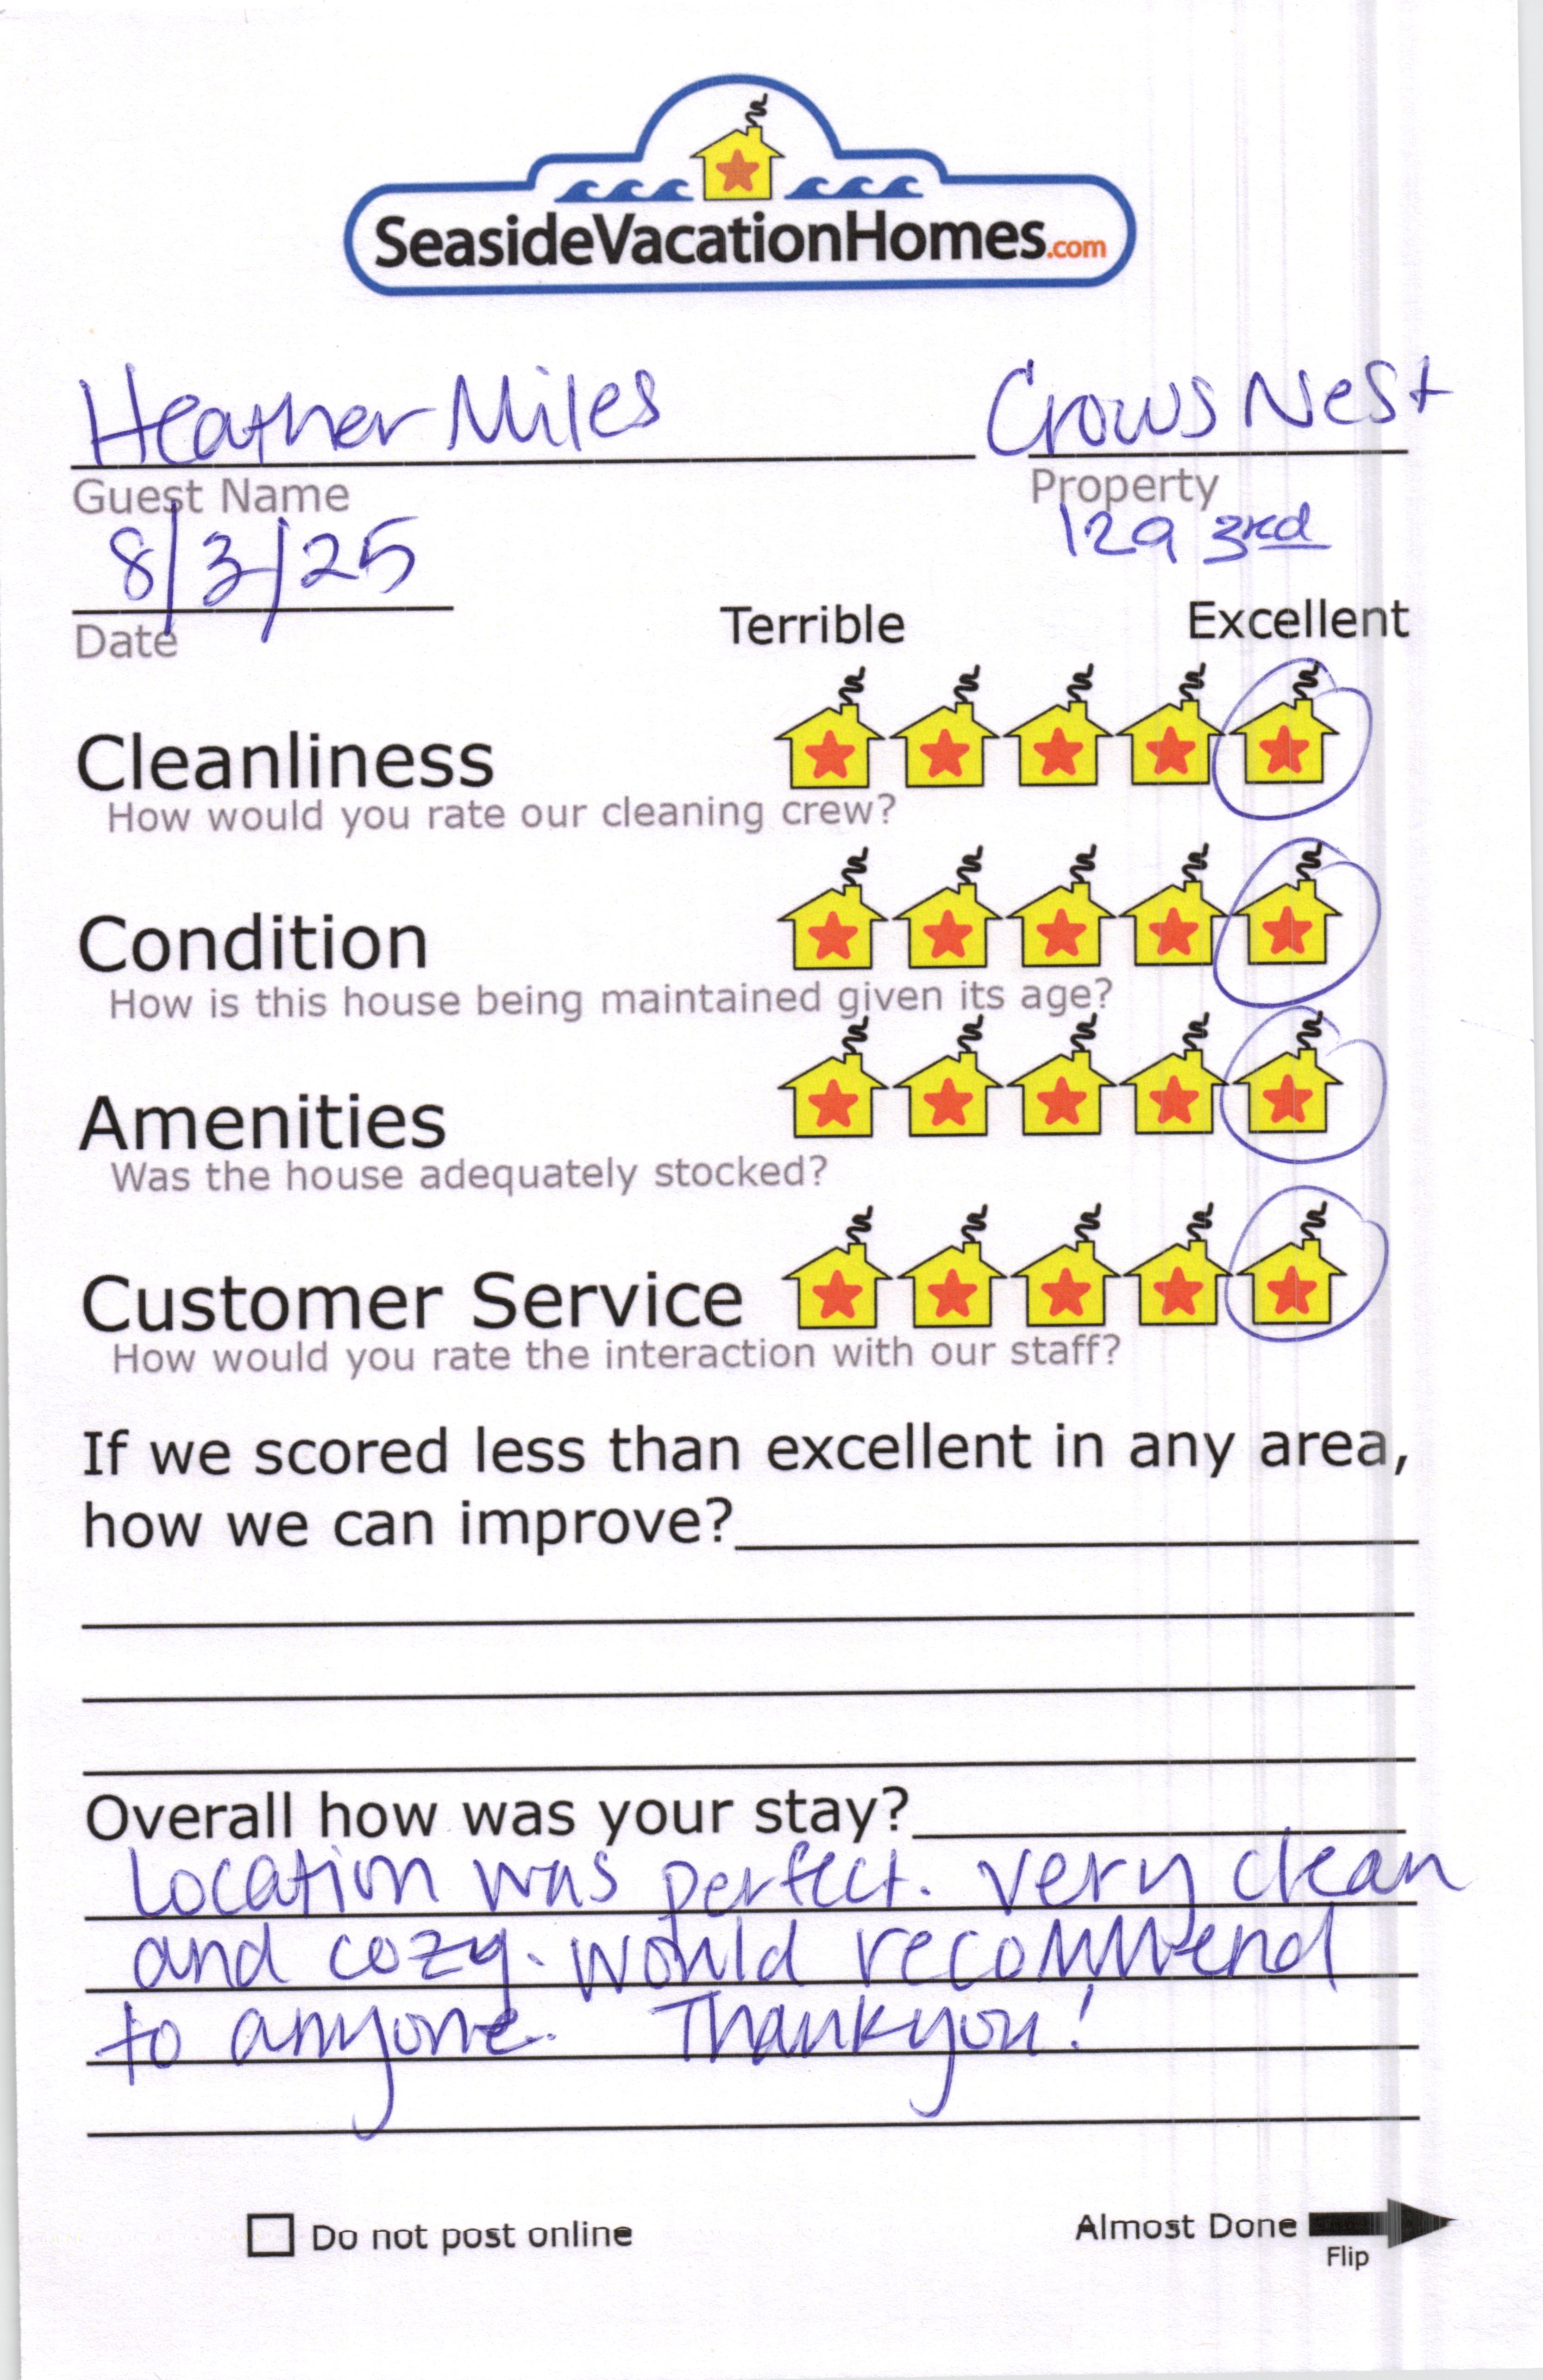 SeasideVacationHomes.com
Heather Miles Crows Nest
Guest Name Property
8/3/25 129 3rd
Date Terrible Excellent
Cleanliness
How would you rate our cleaning crew?
Condition
How is this house being maintained given its age?
Amenities
Was the house adequately stocked?
Customer Service
How would you rate the interaction with our staff?
If we scored less than excellent in any area,
how we can improve?
Overall how was your stay?
Location was perfect. very clean
and cozy. would recommend
to anyone. Thankyou!
Do not post online Almost Done
Flip